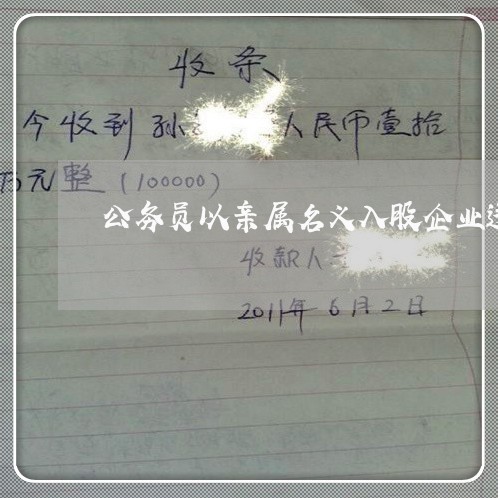 收条
今收到孙 人民币壹拾
万元整(100000)
公务员以亲属名义入股企业违
收款人
2011年6月2日